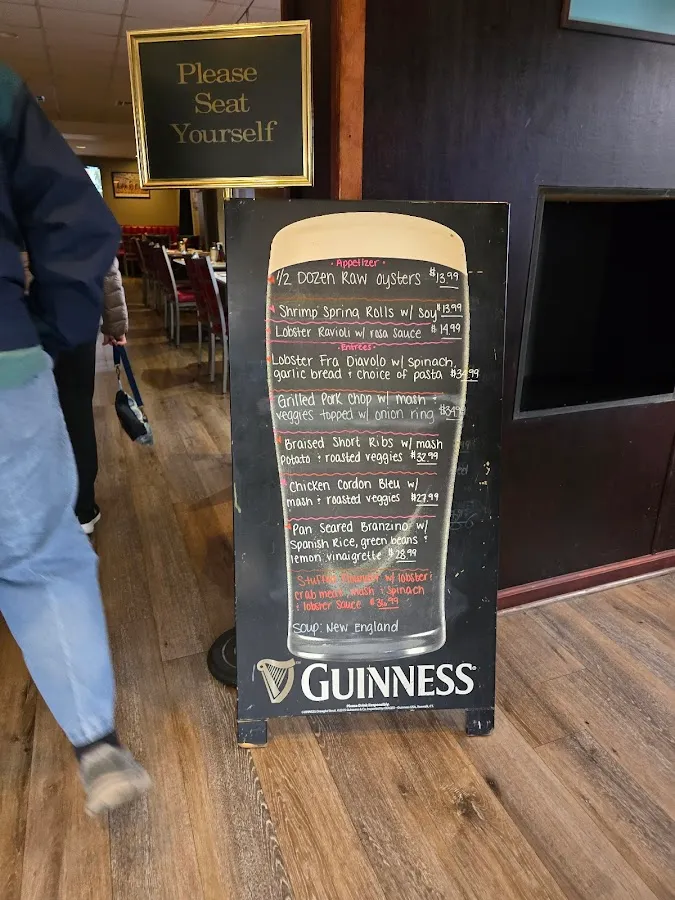 Please
Seat
Yourself
Appetizer
1/2 Dozen Raw oysters $13.99
Shrimp Spring Rolls w/ soy $13.99
Lobster Ravioli w/ rosa sauce $14.99
Entrées
Lobster Fra Diavolo w/ spinach,
garlic bread + choice of pasta $34.99
Grilled Pork Chop w/ mash +
veggies topped w/ onion ring $34.99
Braised Short Ribs w/ mash
potato + roasted veggies $32.99
Chicken Cordon Bleu w/
mash + roasted veggies $27.99
Pan Seared Branzino w/
Spanish Rice, green beans +
lemon vinaigrette $28.99
Stuffed w/ lobster +
crab meat, mash + spinach
+ lobster sauce $36.99
Soup: New England
GUINNESS
Please Drink Responsibly.